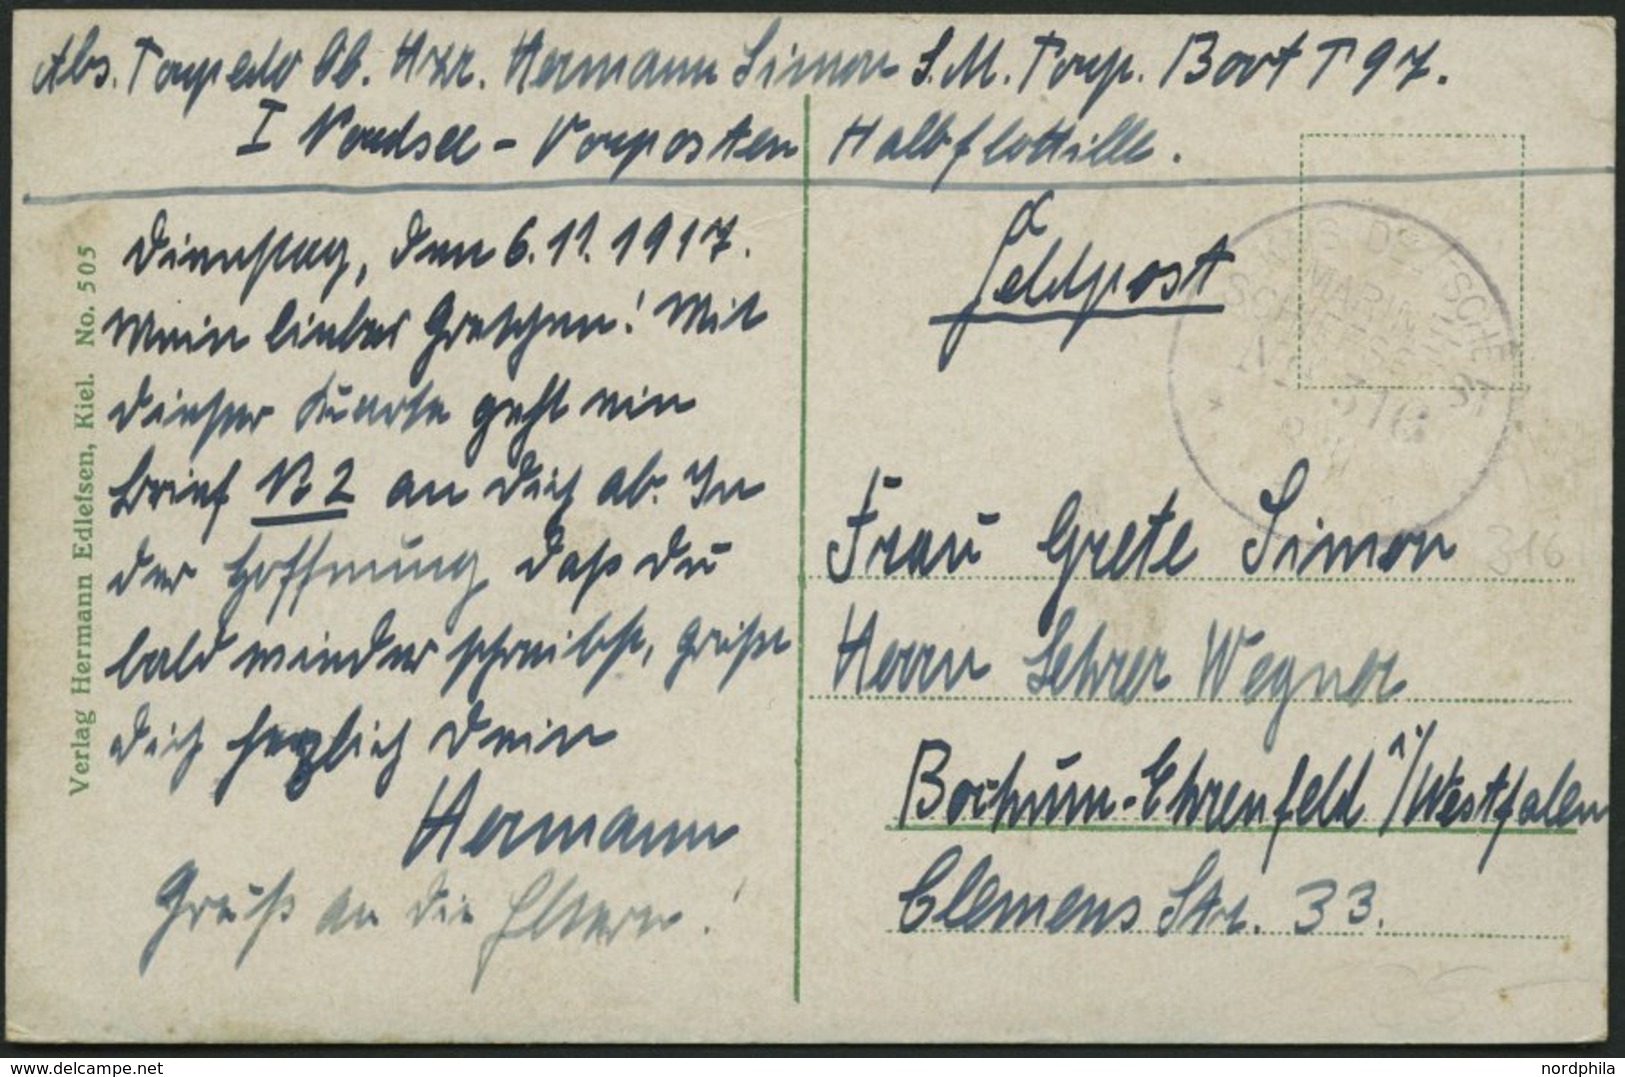 Abs. Torpedo Ob. Hzr. Hermann Simon S.M. Torp. Boot T 97.
I Nordsee - Vorposten Halbflottille.
Dienstag, den 6.11.1917.
Mein liebes Gretchen! Mit
dieser Karte geht ein
Brief No 2 an Dich ab. In
der Hoffnung daß Du
bald wieder schreibst, grüßt
Dich herzlich Dein
Hermann
Gruß an die Eltern!
Verlag Hermann Edlefsen, Kiel. No. 505
Feldpost
DEUTSCHE
MARINE
SCHIFFSPOST
316
Frau Grete Simon
316
Herrn Lehrer Wegner
Bochum-Ehrenfeld i/Westfalen
Clemens Str. 33.
nordphila
www.delcampe.net